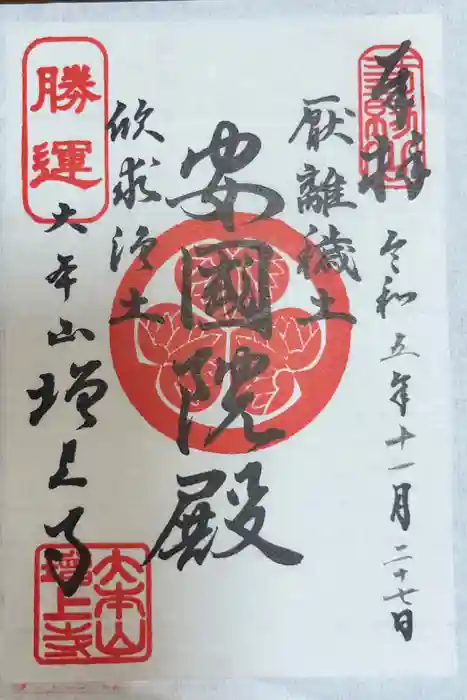 奉拝
令和五年十一月二十七日
厭離穢土
安國院殿
欣求浄土
勝運
大本山増上寺
大本山増上寺